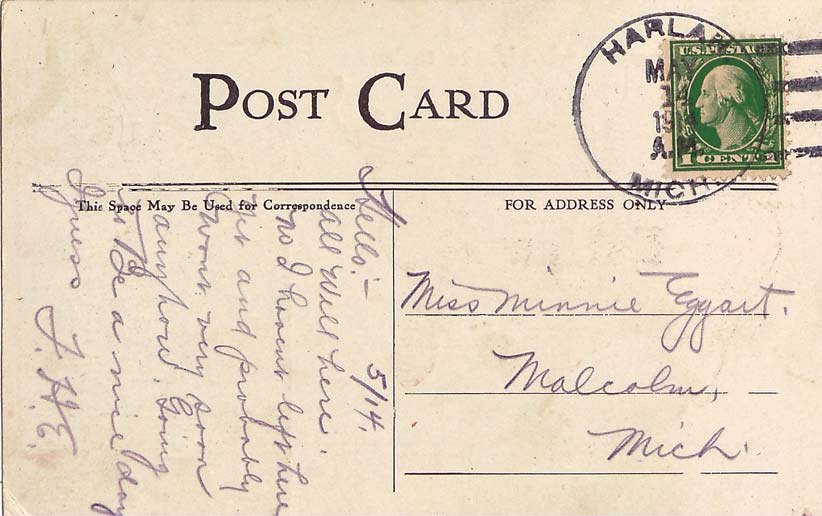 POST CARD
HARLAN
MAY
A.M.
MICH.
U.S. POSTAGE
1 CENT 1
This Space May Be Used for Correspondence
FOR ADDRESS ONLY
5/14.
Hello:—
all well here.
no I havent left here
yet and probably
wont very soon
anyhow. Going
to Be a nice day
I guess
F.H.E.
Miss Minnie Eggart.
Malcolm,
Mich.